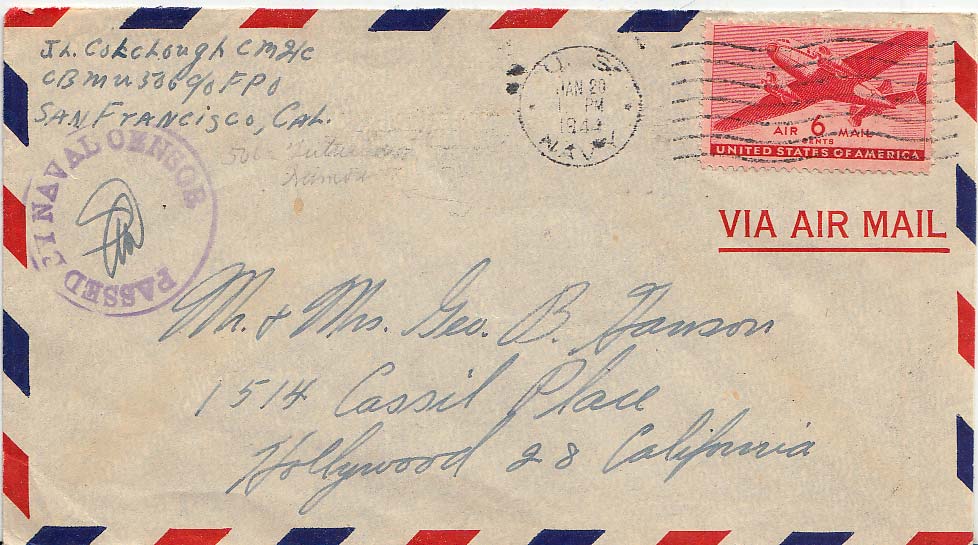 J.L. Colclough CM2/C
CBMU 536 90 FPO
San Francisco, Cal.
PASSED BY NAVAL CENSOR
U. S. NAVY
JAN 20
PM
1944
AIR 6 MAIL
CENTS
UNITED STATES OF AMERICA
VIA AIR MAIL
Mr. & Mrs. Geo. B. Hanson
1514 Cassil Place
Hollywood 28 California